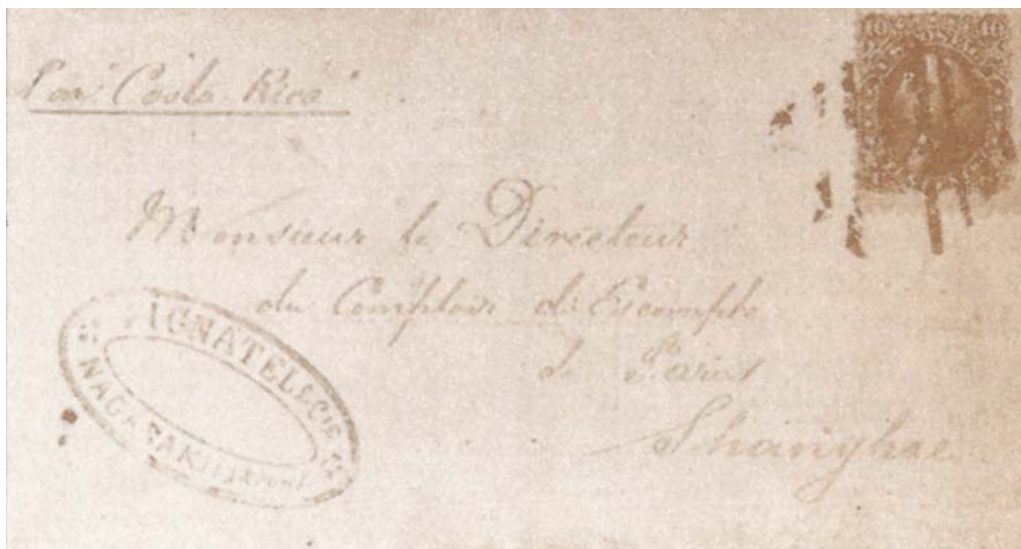 10 10
Par "Costa Rica"
Monsieur le Directeur
du Comptoir d'Escompte
de Paris
Shanghae
PIGNATEL & CIE
NAGASAKI (JAPON)